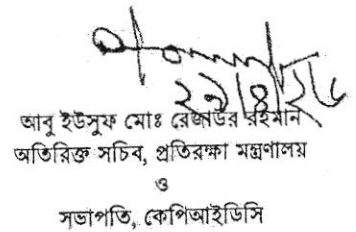 ২৯/৪/২৫
আবু ইউসুফ মোঃ রেজাউর রহমান
অতিরিক্ত সচিব, প্রতিরক্ষা মন্ত্রণালয়
ও
সভাপতি, কেপিআইডিসি